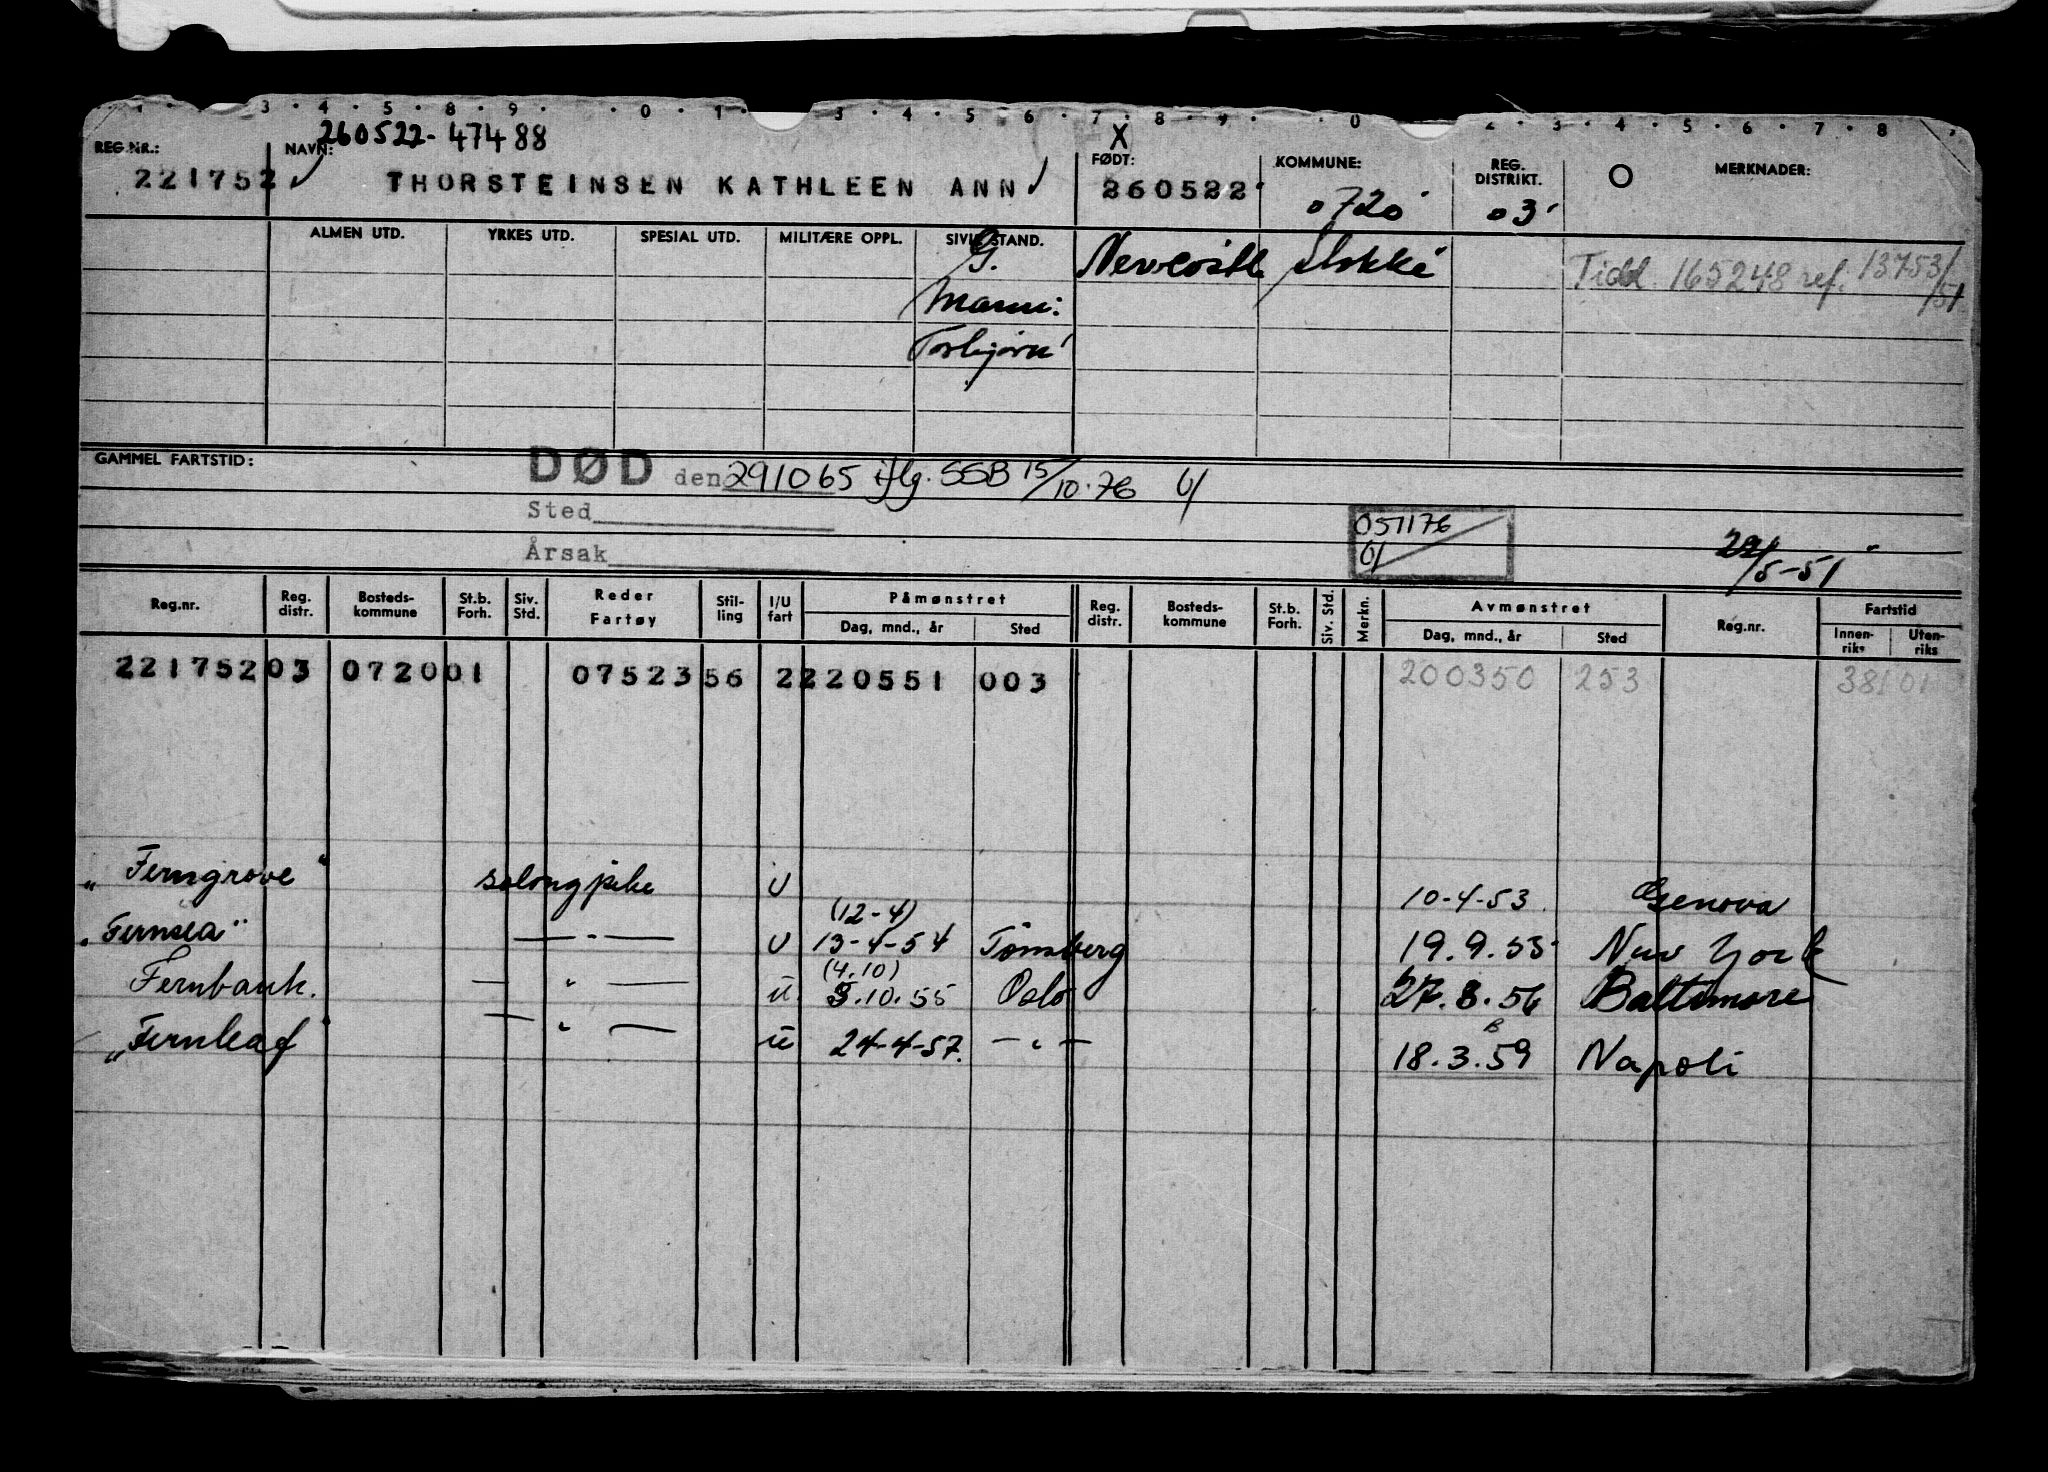 3 · 4 · 5 · 8 · 9 · · 0 · 1 · 3 · 4 · 5 · 6 · 7 · 8 · 9 · · 0 2 · 3 · 4 · 5 · 6 · 7 · 8
260522-47488 X
REG.NR.: NAVN: FØDT: KOMMUNE: REG. DISTRIKT. O MERKNADER:
221752 THORSTEINSEN KATHLEEN ANN 260522 0720 03
ALMEN UTD. YRKES UTD. SPESIAL UTD. MILITÆRE OPPL. SIVILSTAND.
G. Newcastl Stokke Tidl. 165248 ref. 13753/51
Mann:
Torbjørn
GAMMEL FARTSTID: DØD den 291065 iflg. SSB 15/10.76
Sted
051176
Årsak 22/5-51
Reg.nr. Reg. distr. Bosteds-kommune St.b. Forh. Siv. Std. Reder Fartøy Stil-ling I/U fart Påmønstret Reg. distr. Bosteds-kommune St.b. Forh. Siv. Std. Merkn. Avmønstret Reg.nr. Fartstid
Dag, mnd., år Sted Dag, mnd., år Sted Innen-riks Uten-riks
221752 03 0720 01 07523 56 2 220551 003 200350 253 38101
"Ferngrove" salongpike U 10-4-53 Genova
(12-4)
"Fernsea" — " — U 13-4-54 Tønsberg 19.9.55 New York
(4.10)
Fernbank. — " — u 5.10.55 Oslo 27.8.56 Baltimore
"Fernleaf" — " — u 24-4-57. — " — 18.3.59 Napoli